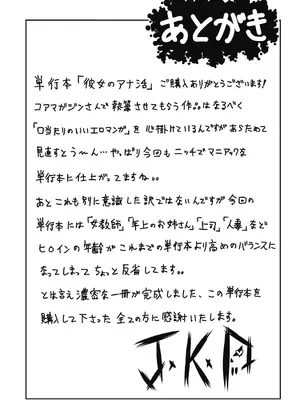 あとがき
単行本「彼女のアナ活」ご購入ありがとうございます!
コアマガジンさんで執筆させてもらう作品はなるべく
「口当たりのいいエロマンガ」を心掛けているんですがあらためて
見直すとう〜ん…やっぱり今回もニッチでマニアックな
単行本に仕上がってますね。。
あとこれも別に意識した訳ではないんですが今回の
単行本には「女教師」「年上のお姉さん」「上司」「人妻」など
ヒロインの年齢がこれまでの単行本より高めのバランスに
なってしまってちょっと反省してます。。
とは言え濃密な一冊が完成しました、この単行本を
購入して下さった全ての方に感謝いたします。
J・K・P